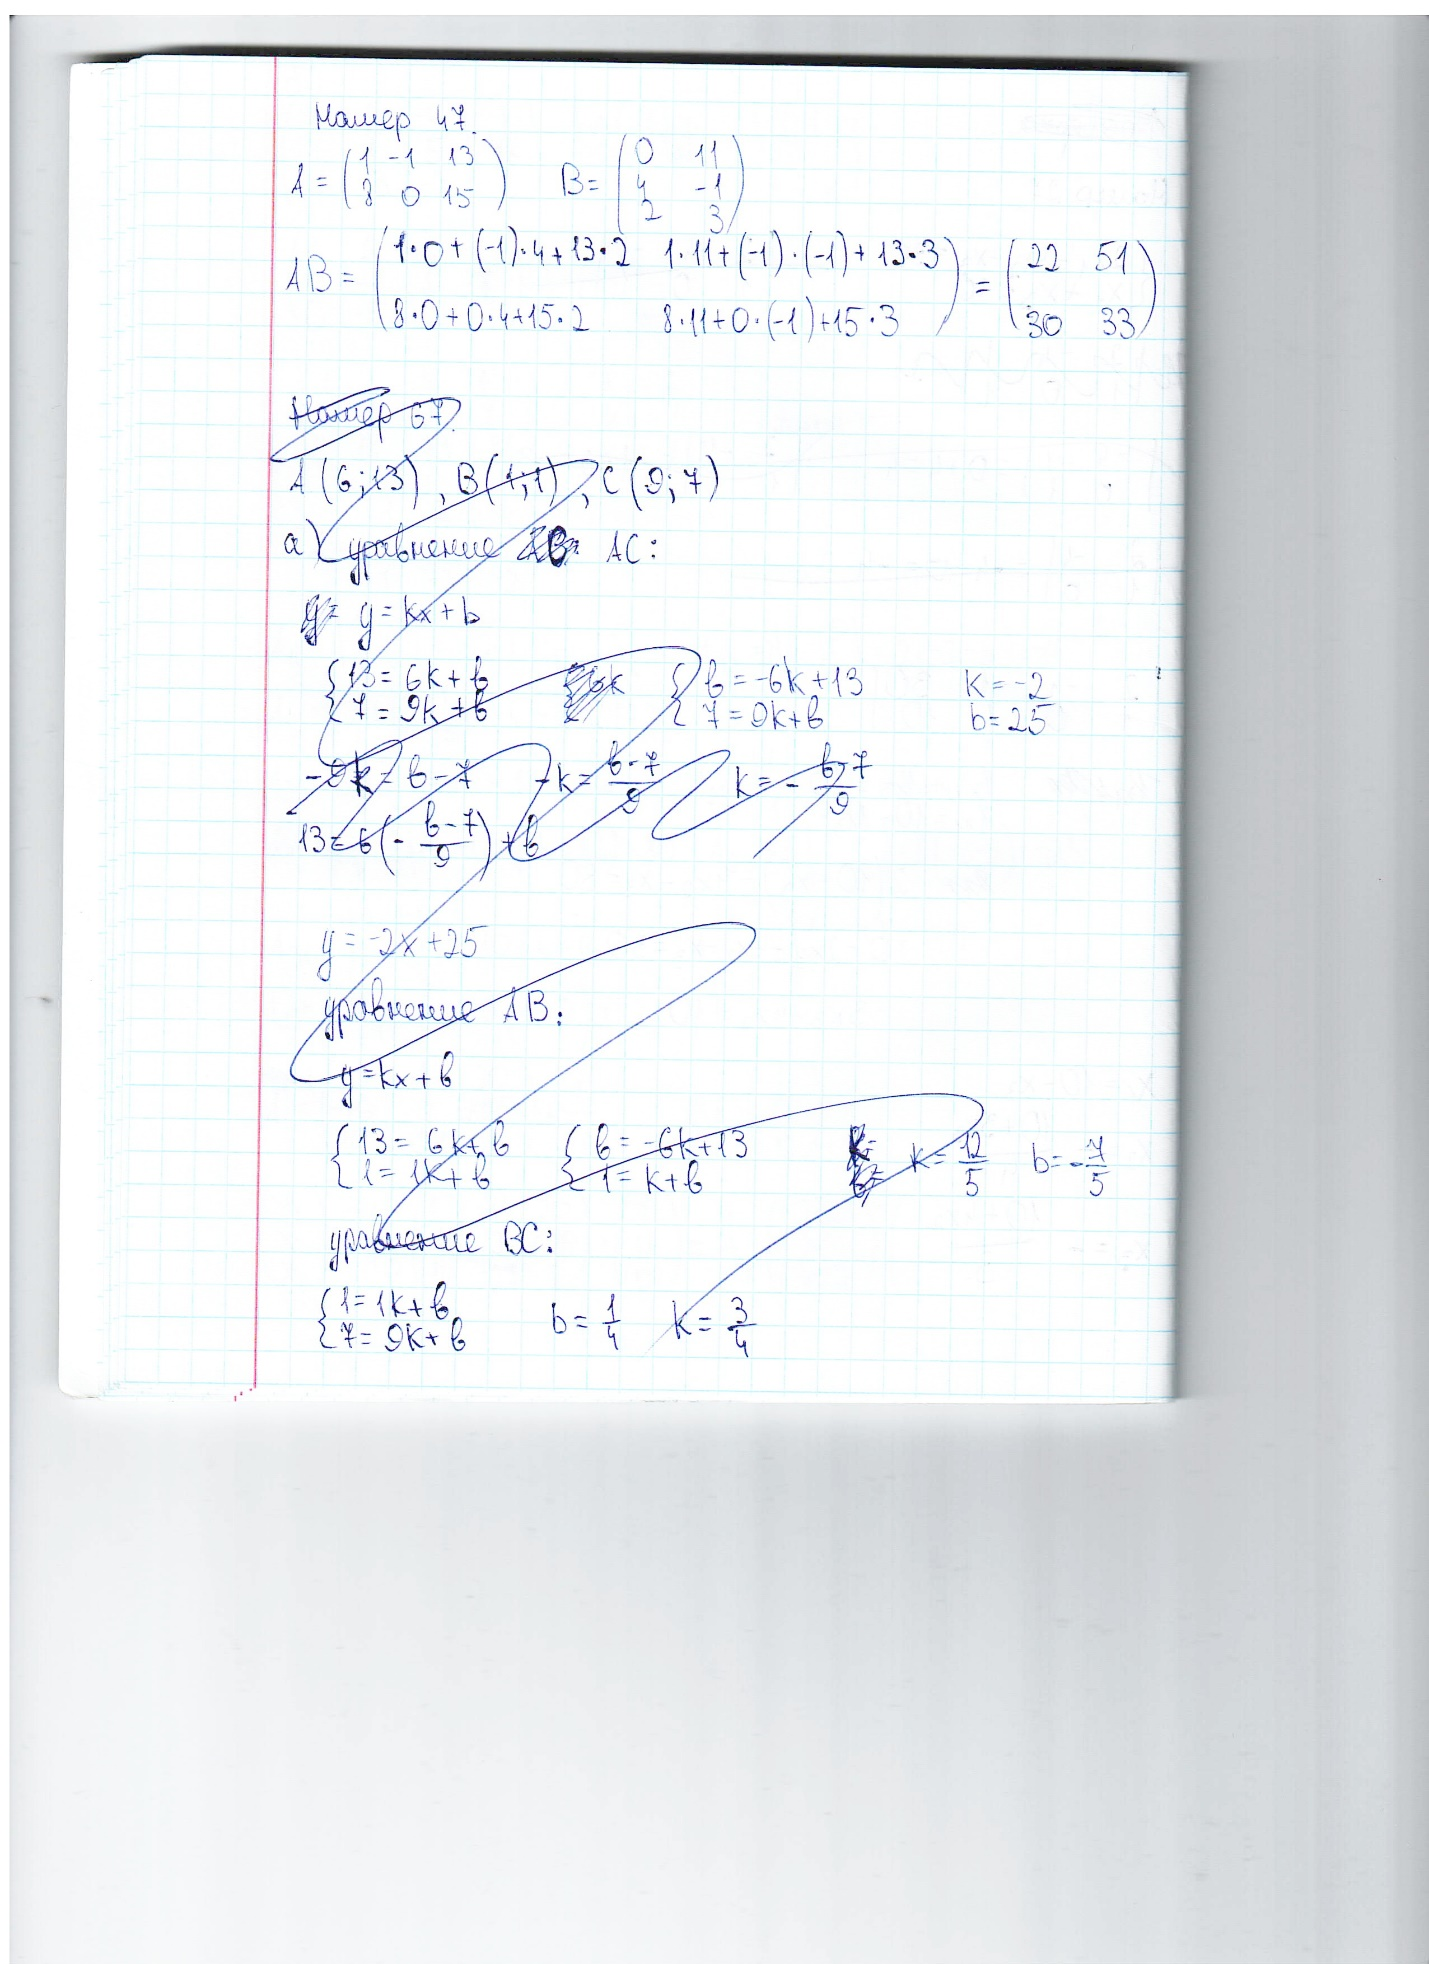 Номер 47.
A = (1 -1 13
8 0 15) B = (0 11
4 -1
2 3)
AB = (1·0+(-1)·4+13·2 1·11+(-1)·(-1)+13·3
8·0+0·4+15·2 8·11+0·(-1)+15·3) = (22 51
30 33)
Номер 67.
A(6;13), B(1;1), C(9;7)
а) уравнение AC:
y = kx + b
{13 = 6k + b
7 = 9k + b {b = -6k+13
7 = 9k+b k = -2
b = 25
-9k = b-7 -k = (b-7)/9 k = - (b-7)/9
13 = 6(- (b-7)/9) + b
y = -2x + 25
уравнение AB:
y = kx + b
{13 = 6k + b
1 = 1k + b {b = -6k+13
1 = k+b k = 12/5 b = -7/5
уравнение BC:
{1 = 1k + b
7 = 9k + b b = 1/4 k = 3/4